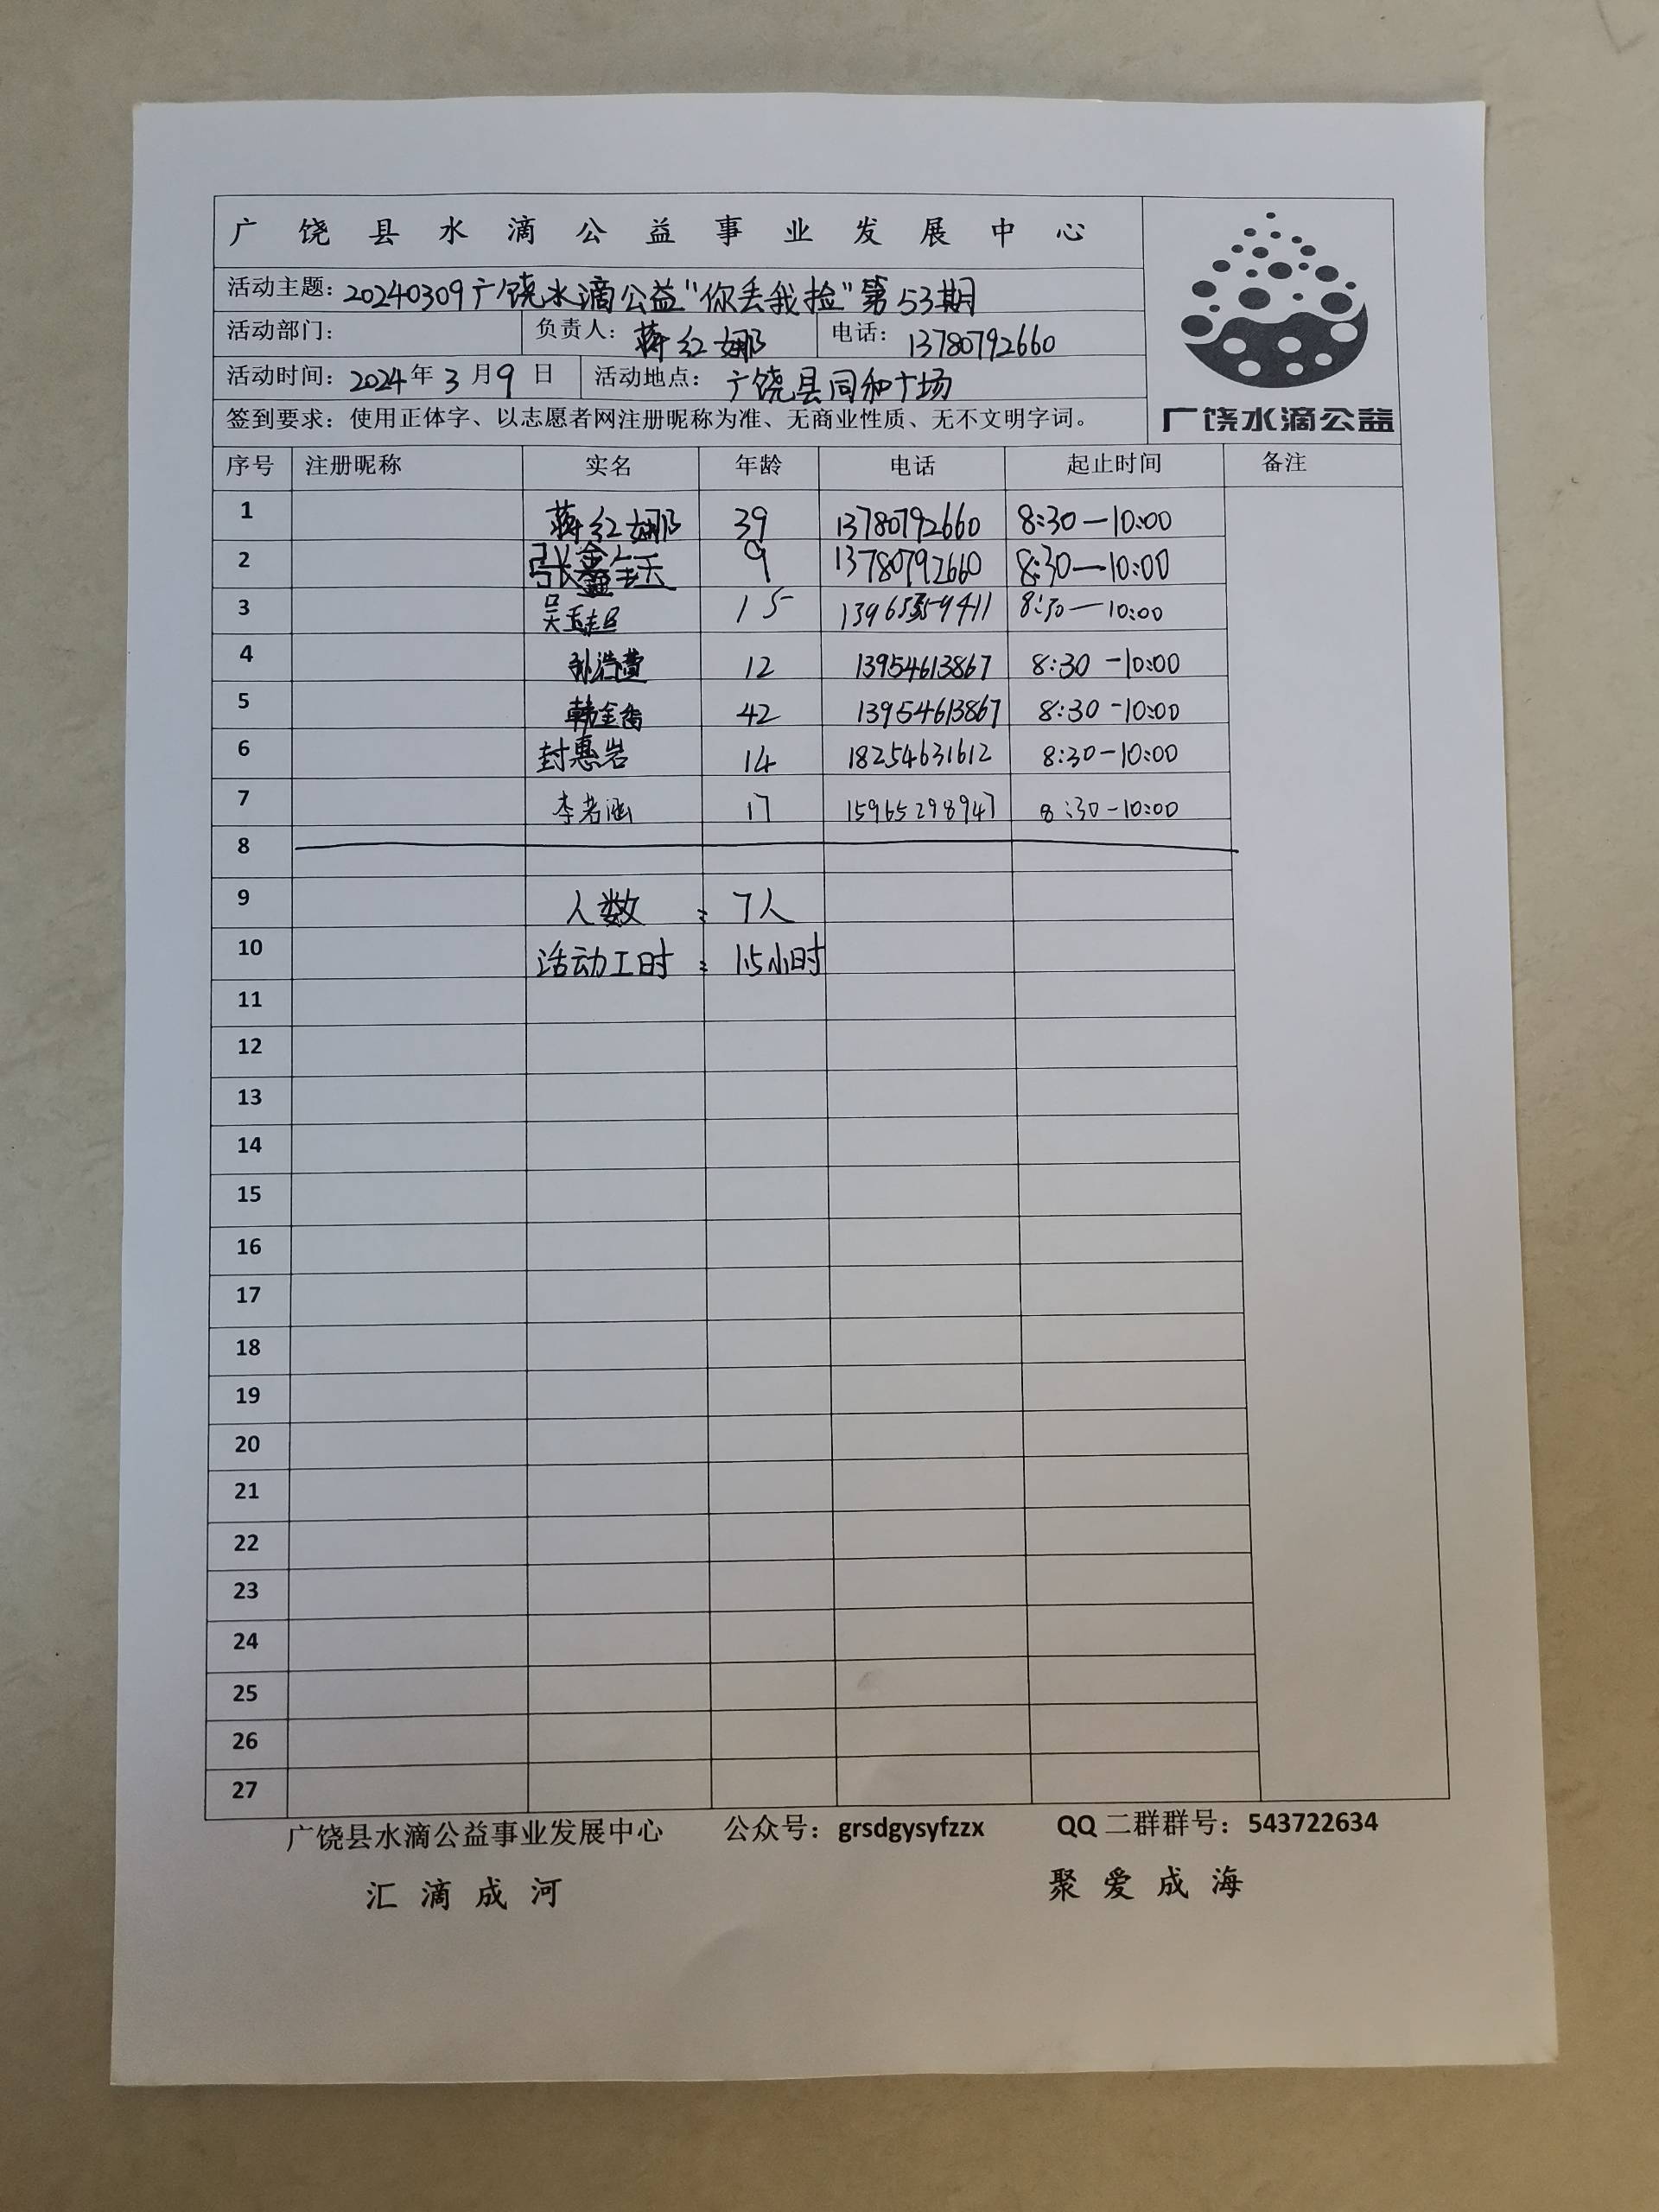 广饶县水滴公益事业发展中心
活动主题：20240309广饶水滴公益"你丢我捡"第53期
活动部门： 负责人：蒋红娜 电话：13780792660
活动时间：2024年3月9日 活动地点：广饶县同和广场
签到要求：使用正体字、以志愿者网注册昵称为准、无商业性质、无不文明字词。
广饶水滴公益
序号 注册昵称 实名 年龄 电话 起止时间 备注
1 蒋红娜 39 13780792660 8:30—10:00
2 张鑫 9 13780792660 8:30—10:00
3 吴 15 8:30—10:00
4 孙浩 12 13954613867 8:30-10:00
5 韩金香 42 13954613867 8:30-10:00
6 封惠岩 14 18254631612 8:30-10:00
7 李若涵 17 15965298947 8:30-10:00
8
9 人数：7人
10 活动工时：1.5小时
11
12
13
14
15
16
17
18
19
20
21
22
23
24
25
26
27
广饶县水滴公益事业发展中心 公众号：grsdgysyfzzx QQ二群群号：543722634
汇滴成河 聚爱成海